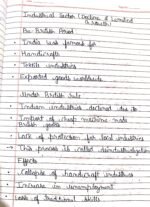 Industrial Sector (Decline & Limited Growth)
Pre British Period
• India was famous for
• Handicrafts
• Textile industries
• Exported goods worldwide
Under British Rule
• Indian industries declined due to
• Import of cheap machine made British goods
• Lack of protection for local industries
→ This process is called deindustrialization
Effects
• Collapse of handicraft industries
• Increase in unemployment
Loss of traditional skills